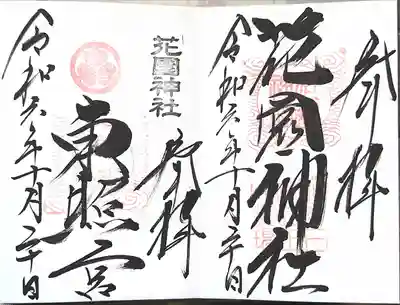 奉拝
花園神社
令和六年十月二十日
奉拝
花園神社
東照宮
令和六年十月二十日